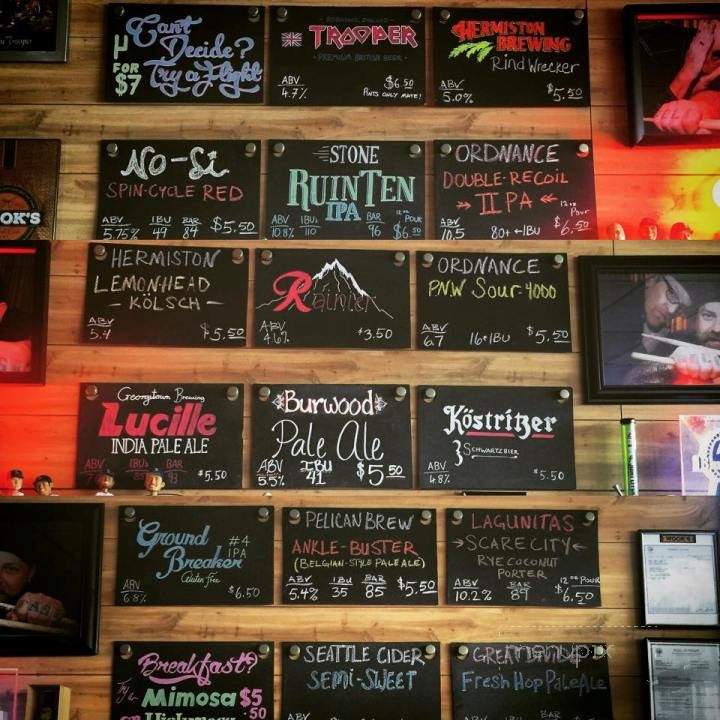 Can't
Decide?
4
FOR
$7
Try a Flight
TROOPER
PREMIUM BRITISH BEER
ABV
4.7%
$6.50
PINTS ONLY MATE!
HERMISTON
BREWING
Rind Wrecker
ABV
5.0%
$5.50
OK'S
NO-Li
SPIN-CYCLE RED
ABV IBU BAR
5.75% 49 84 $5.50
STONE
RUINTEN
IPA
ABV IBUs BAR 12oz POUR
10.8% 110 96 $6.50
ORDNANCE
DOUBLE-RECOIL
IIPA
ABV 12oz Pour
10.5 80+ IBU $6.50
HERMISTON
LEMONHEAD
- KÖLSCH -
ABV
5.4 $5.50
Rainier
ABV
4.6% $3.50
ORDNANCE
PNW Sour 4000
ABV
6.7 16 IBU $5.50
Georgetown Brewing
Lucille
INDIA PALE ALE
ABV IBUs BAR
93 $5.50
Burwood
Pale Ale
ABV IBU
5.5% 41 $5.50
Köstritzer
SCHWARTZBIER
ABV
4.8% $5.50
Ground
Breaker
#4
IPA
Gluten Free
ABV
6.8% $6.50
PELICAN BREW
ANKLE-BUSTER
(BELGIAN-STYLE PALE ALE)
ABV IBU BAR
5.4% 35 85 $5.50
LAGUNITAS
SCARE CITY
RYE COCONUT
PORTER
ABV BAR 12oz POUR
10.2% 89 $6.50
menupix
Breakfast?
Try a
Mimosa $5
.50
SEATTLE CIDER
SEMI-SWEET
ABV
GREAT DIVIDE
Fresh Hop Pale Ale
ABV BAR